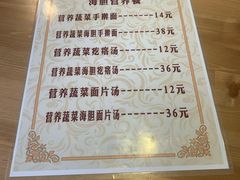 海胆营养餐
营养蔬菜手擀面——14元
营养蔬菜海胆手擀面——38元
营养蔬菜疙瘩汤——12元
营养蔬菜海胆疙瘩汤——36元
营养蔬菜面片汤——12元
营养蔬菜海胆面片汤——36元